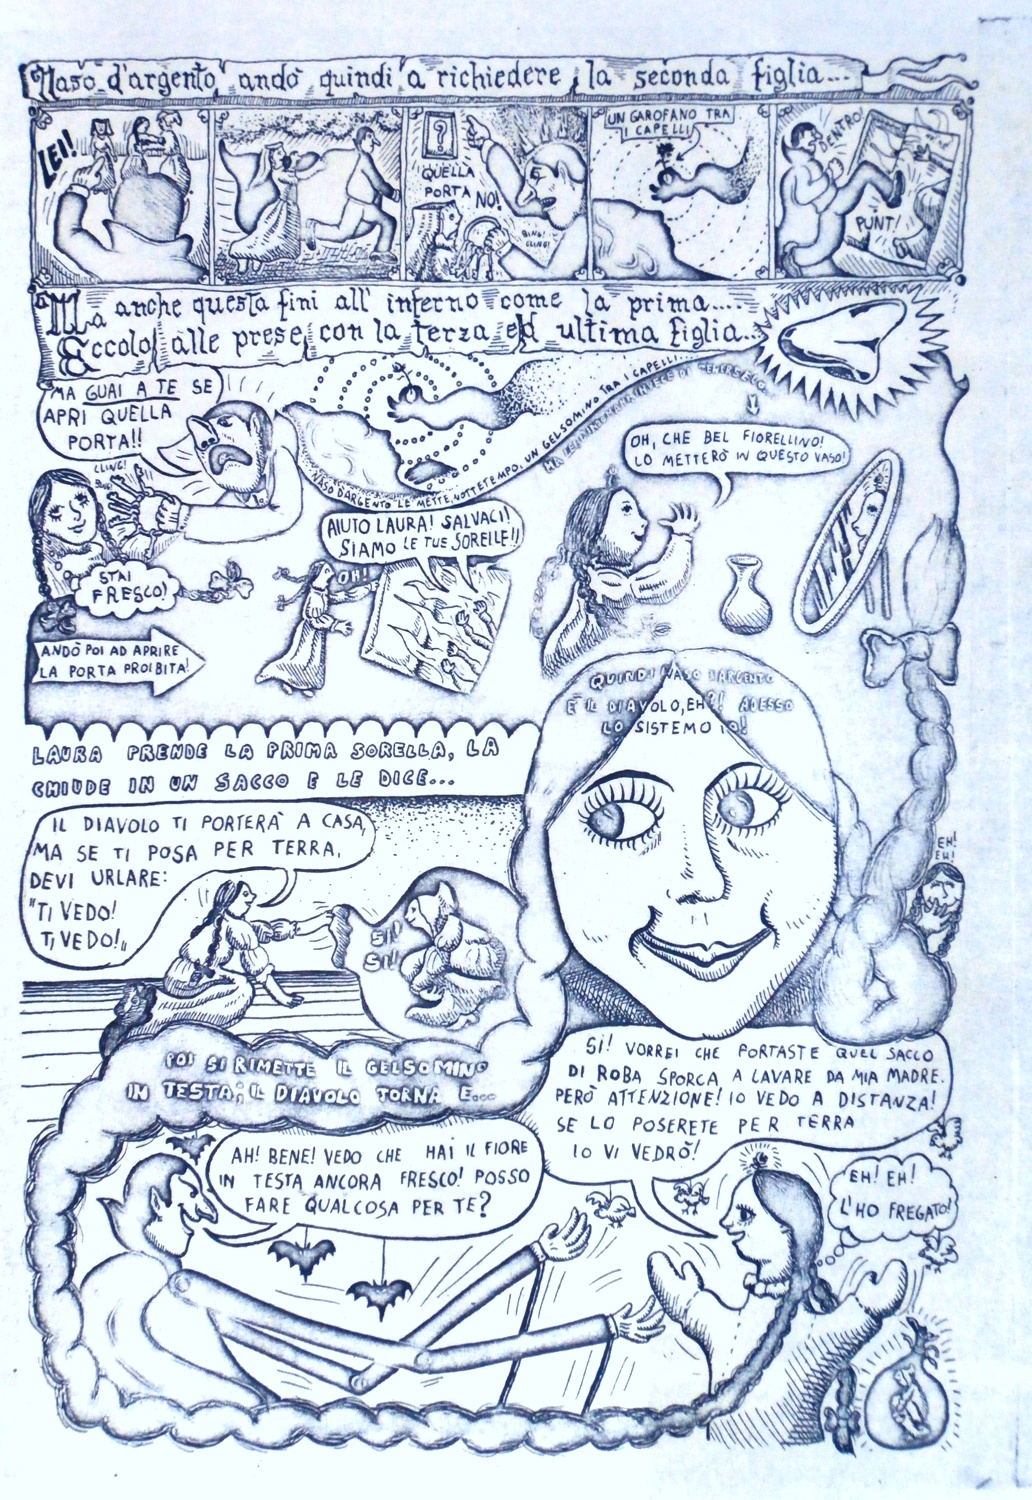 Naso d'argento andò quindi a richiedere la seconda figlia...
LEI!
QUELLA
PORTA
NO!
?
DING!
CLING!
UN GAROFANO TRA
I CAPELLI
DENTRO!
PUNT!
Ma anche questa finì all'inferno come la prima....
Eccolo alle prese con la terza ed ultima figlia...
MA GUAI A TE SE
APRI QUELLA
PORTA!!
CLING!
STAI
FRESCO!
NASO D'ARGENTO LE METTE, NOTTETEMPO, UN GELSOMINO TRA I CAPELLI
OH, CHE BEL FIORELLINO!
LO METTERÒ IN QUESTO VASO!
AIUTO LAURA! SALVACI!
SIAMO LE TUE SORELLE!!
OH!
ANDÒ POI AD APRIRE
LA PORTA PROIBITA!
QUINDI NASO D'ARGENTO
È IL DIAVOLO, EH?! ADESSO
LO SISTEMO IO!
LAURA PRENDE LA PRIMA SORELLA, LA
CHIUDE IN UN SACCO E LE DICE...
IL DIAVOLO TI PORTERÀ A CASA,
MA SE TI POSA PER TERRA,
DEVI URLARE:
"TI VEDO!
TI VEDO!"
SI!
SI!
EH!
EH!
POI SI RIMETTE IL GELSOMINO
IN TESTA; IL DIAVOLO TORNA E...
AH! BENE! VEDO CHE HAI IL FIORE
IN TESTA ANCORA FRESCO! POSSO
FARE QUALCOSA PER TE?
SI! VORREI CHE PORTASTE QUEL SACCO
DI ROBA SPORCA A LAVARE DA MIA MADRE.
PERÒ ATTENZIONE! IO VEDO A DISTANZA!
SE LO POSERETE PER TERRA
IO VI VEDRÒ!
EH! EH!
L'HO FREGATO!